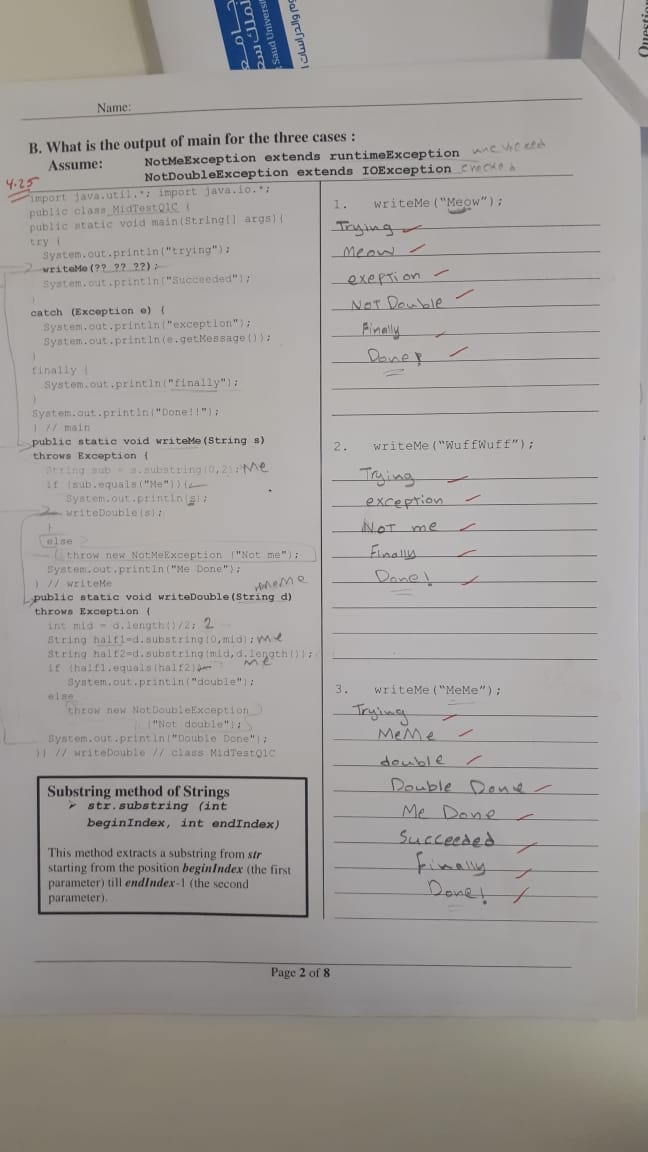 Saud Universi
Questio
Name:
B. What is the output of main for the three cases :
Assume: NotMeException extends runtimeException
NotDoubleException extends IOException
4.25
import java.util.*; import java.io.*;
public class MidTestQ1C {
public static void main(String[] args){
try {
System.out.println("trying");
writeMe(?? ?? ??);
System.out.println("Succeeded");
}
catch (Exception e) {
System.out.println("exception");
System.out.println(e.getMessage());
}
finally {
System.out.println("finally");
}
System.out.println("Done!!");
} // main
public static void writeMe(String s)
throws Exception {
String sub = s.substring(0,2); Me
if (sub.equals("Me")){
System.out.println(s);
writeDouble(s);
}
else
throw new NotMeException ("Not me");
System.out.println("Me Done");
} // writeMe
MeMe
public static void writeDouble(String d)
throws Exception {
int mid = d.length()/2; 2
String half1=d.substring(0,mid); me
String half2=d.substring(mid,d.length());
me
if (half1.equals(half2))
System.out.println("double");
else
throw new NotDoubleException
("Not double");
System.out.println("Double Done");
}} // writeDouble // class MidTestQ1C
Substring method of Strings
➤ str.substring (int
beginIndex, int endIndex)
This method extracts a substring from str
starting from the position beginIndex (the first
parameter) till endIndex-1 (the second
parameter).
1. writeMe("Meow");
Trying
Meow
exeption
NOT Double
Finally
Done!
2. writeMe("WuffWuff");
Trying
exception
NOT me
Finally
Done!
3. writeMe("MeMe");
Trying
MeMe
double
Double Done
Me Done
Succeeded
Finally
Done!
Page 2 of 8